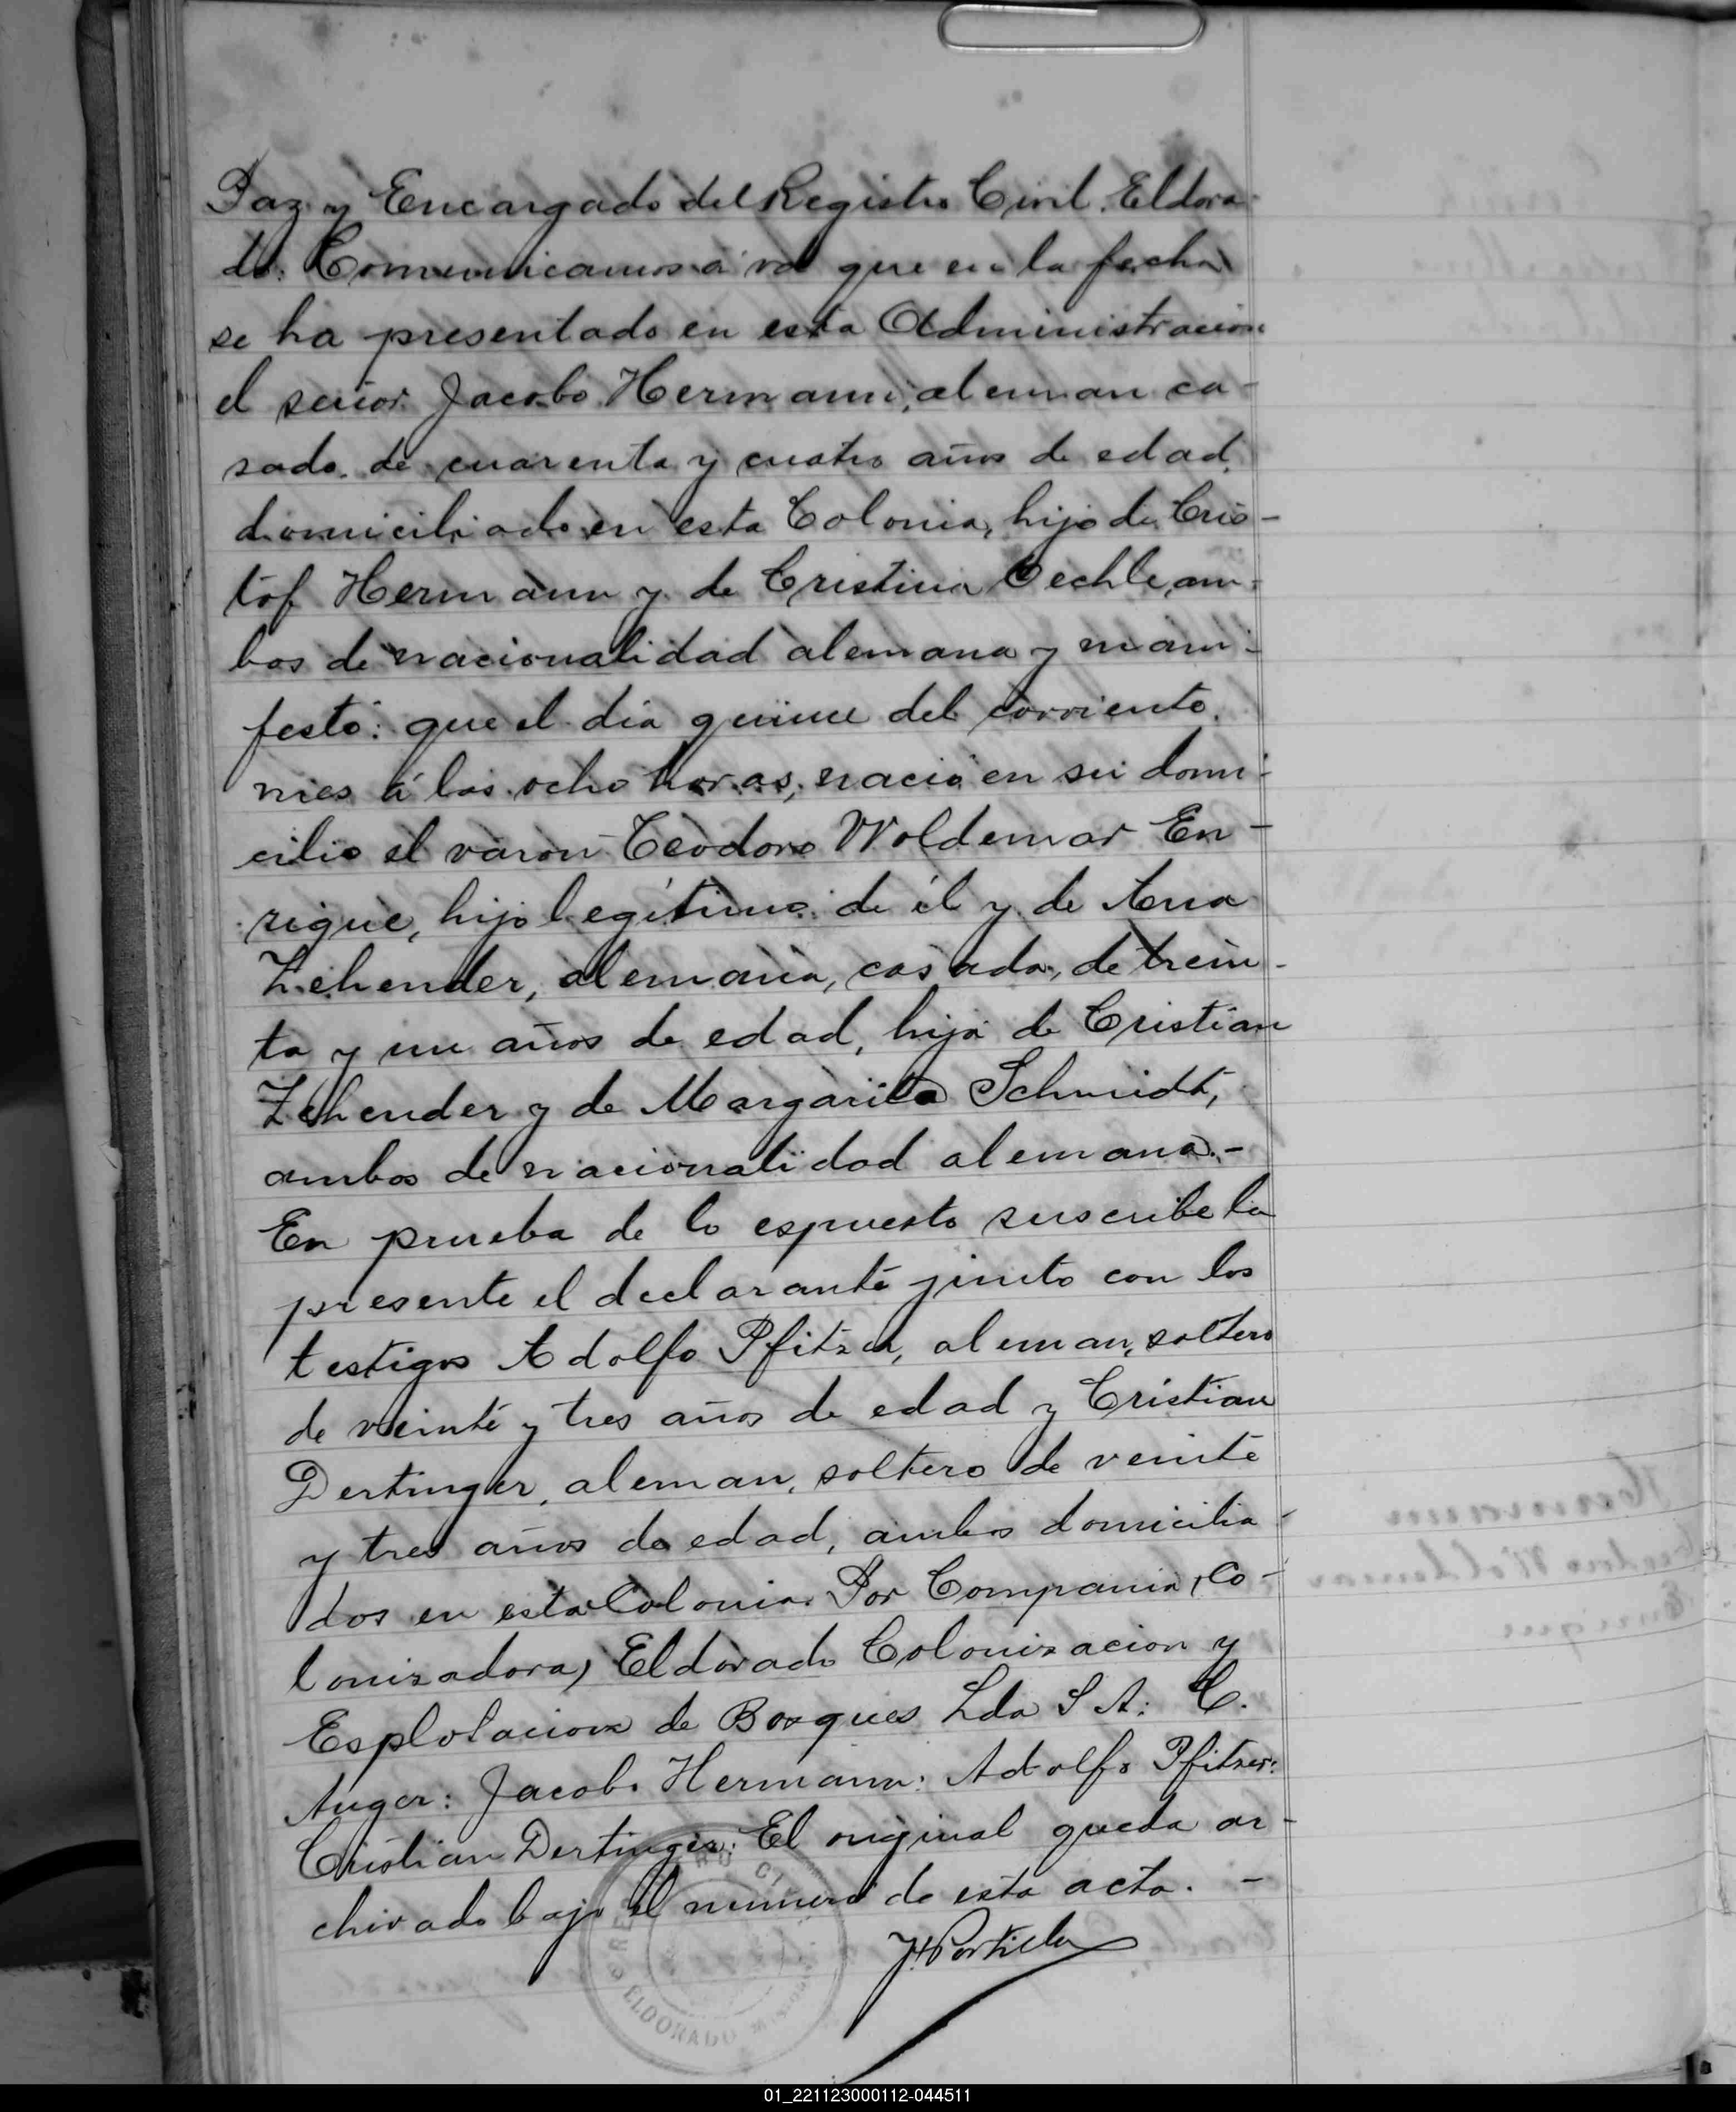 Paz y Encargado del Registro Civil. Eldora-
do: Comunicamos á vd que en la fecha
se ha presentado en esta Administracion
el señor Jacobo Hermann, aleman ca-
sado, de cuarenta y cuatro años de edad,
domiciliado en esta Colonia, hijo de Cris-
tof Hermann y de Cristina Oechle, am-
bos de nacionalidad alemana y mani-
festó: que el dia quince del corriente
mes á las ocho horas, nació en su domi-
cilio el varon Teodoro Woldemar En-
rique, hijo legítimo de él y de Ana
Zehender, alemana, casada, de trein-
ta y un años de edad, hija de Cristian
Zehender y de Margarita Schmidt,
ambos de nacionalidad alemana.-
En prueba de lo espuesto suscribe la
presente el declarante junto con los
testigos Adolfo Pfitzer, aleman, soltero
de veinte y tres años de edad y Cristian
Dertinger, aleman, soltero de veinte
y tres años de edad, ambos domicilia-
dos en esta Colonia. Por Compania, Co-
lonizadora, Eldorado Colonizacion y
Esplotacion de Bosques Lda S A: C.
Auger: Jacobo Hermann: Adolfo Pfitzer:
Cristian Dertinger: El original queda ar-
chivado bajo el numero de esta acta. -
ELDORADO
01_221123000112-044511